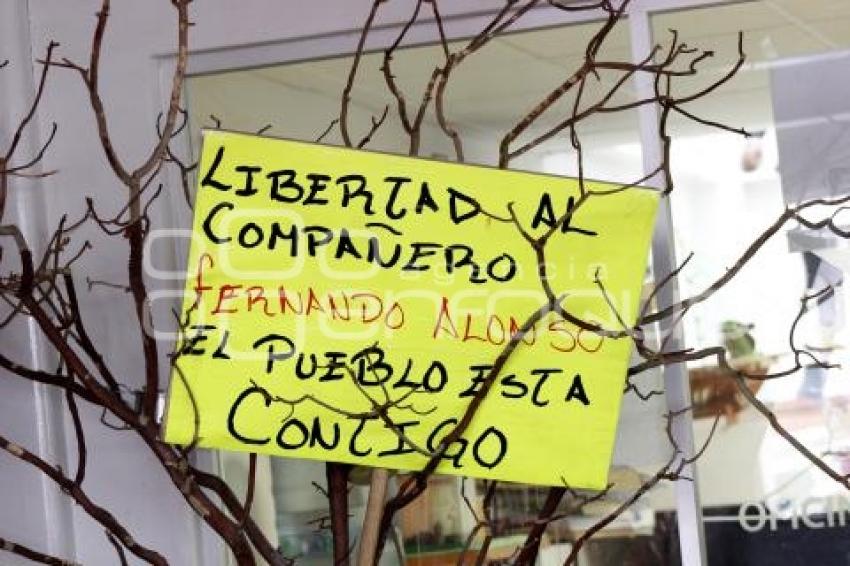 LIBERTAD AL
COMPAÑERO
FERNANDO ALONSO
EL PUEBLO ESTA
CONTIGO
agencia
enfoque